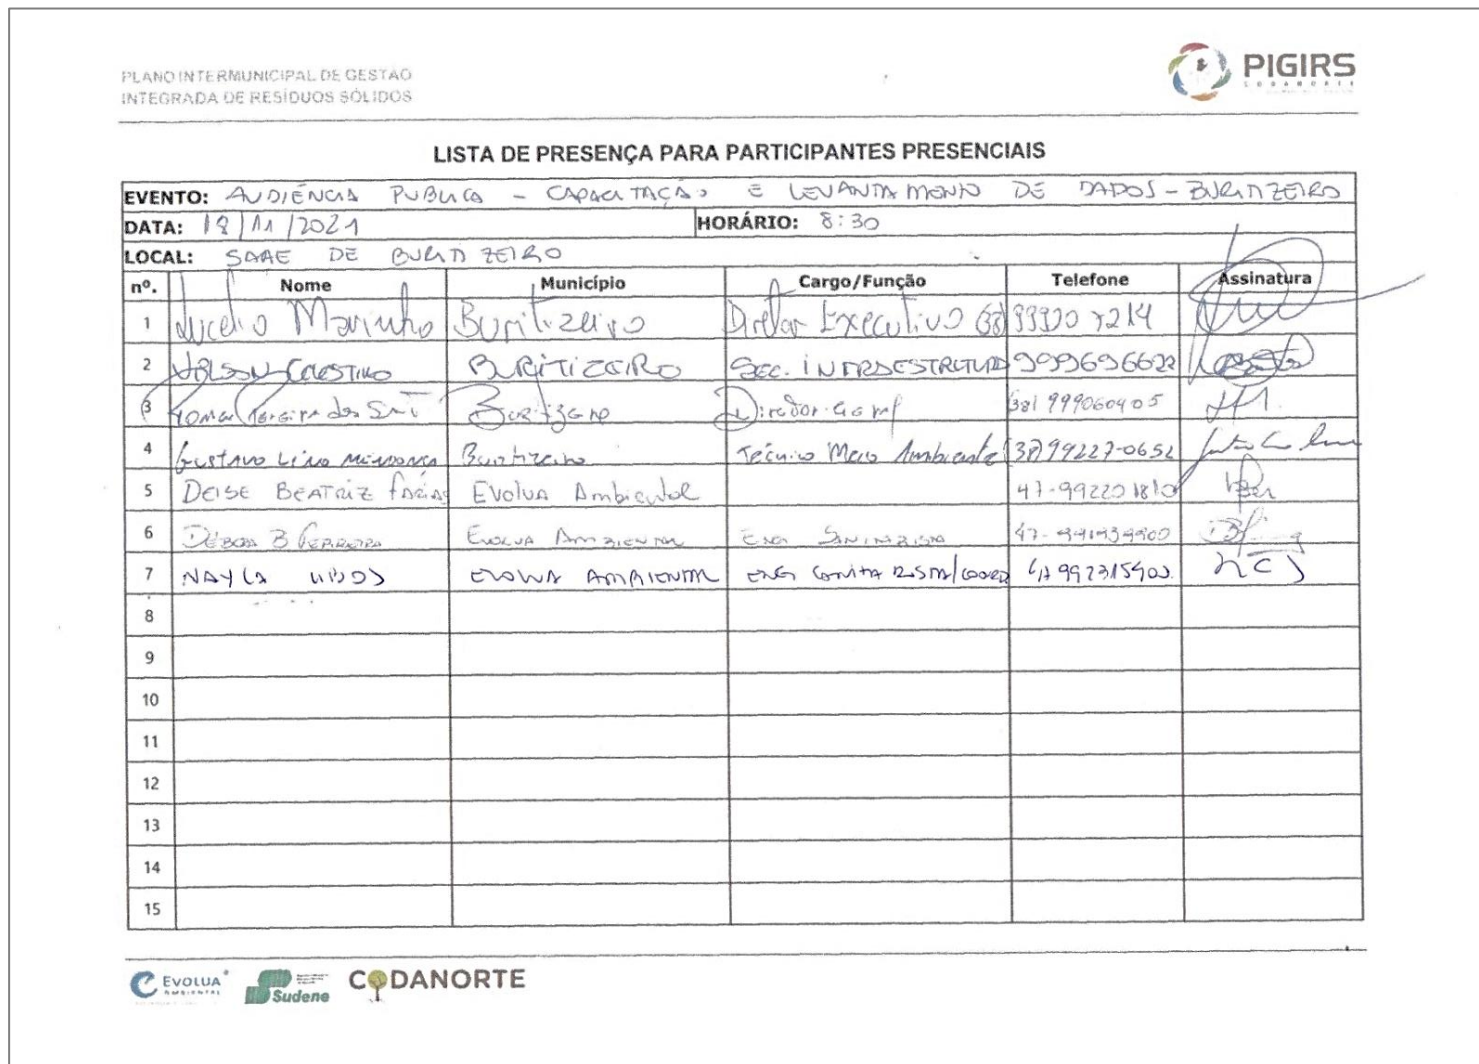 PLANO INTERMUNICIPAL DE GESTÃO
INTEGRADA DE RESÍDUOS SÓLIDOS
PIGIRS
CODANORTE
LISTA DE PRESENÇA PARA PARTICIPANTES PRESENCIAIS
EVENTO: AUDIÊNCIA PUBLICA - CAPACITAÇÃO E LEVANTAMENTO DE DADOS - BURITIZEIRO
DATA: 18/11/2021 HORÁRIO: 8:30
LOCAL: SAAE DE BURITIZEIRO
nº. Nome Município Cargo/Função Telefone Assinatura
1 Lucelio Marinho Buritizeiro Diretor Executivo (38) 99900 7214
2 CELESTINO BURITIZEIRO SEC. INFRAESTRUTURA 999696622
3 Pereira dos Buritizeiro Diretor (38) 999060405
4 Gustavo Lino Mendonça Buritizeiro Técnico Meio Ambiente (38) 99227-0652
5 DEISE BEATRIZ FARIAS Evolua Ambiental 47-992201810
6 DÉBORA B FERREIRA EVOLUA AMBIENTAL ENG SANITARISTA
7 NAYLA EVOLUA AMBIENTAL ENG
8
9
10
11
12
13
14
15
EVOLUA AMBIENTAL Sudene CODANORTE